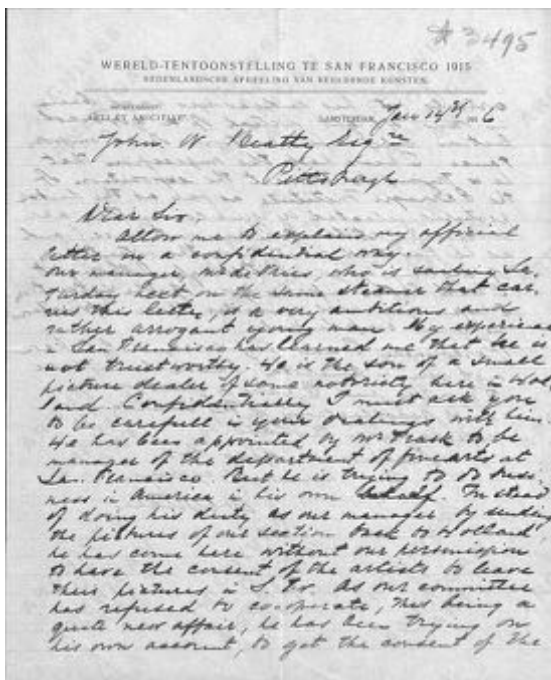 # 3495
WERELD-TENTOONSTELLING TE SAN FRANCISCO 1915
NEDERLANDSCHE AFDEELING VAN BEELDENDE KUNSTEN.
"ARTI ET AMICITIAE" AMSTERDAM, Jan 14th 1916
John W Beatty Esqre
Pittsburgh
Dear Sir.
Allow me to explain my official
letter in a confidential way.
Our manager who is sailing Sa-
turday next on the same steamer that car-
ries this letter, is a very ambitious and
rather arrogant young man. My experience
in San Francisco has learned me that he is
not trustworthy. He is the son of a small
picture dealer of some notoriety here in Hol-
land. Confidentially I must ask you
to be carefull in your dealings with him.
He has been appointed by Mr Trask to be
manager of the department of fine arts at
San Francisco. But he is trying to do busi-
ness in America in his own behalf. Instead
of doing his duty as our manager by sending
the pictures of our section back to Holland,
he has come here without our permission
to have the consent of the artists to leave
their pictures in S. Fr. As our committee
has refused to co-operate, this being a
quite new affair, he has been trying on
his own account, to get the consent of the